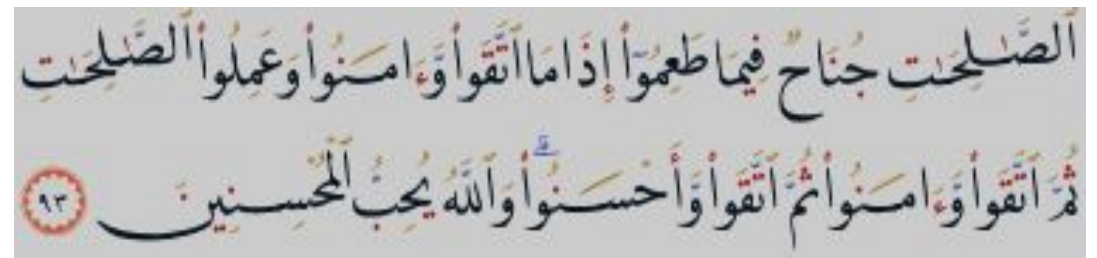 ٱلصَّـٰلِحَـٰتِ جُنَاحٌ فِيمَا طَعِمُوٓا۟ إِذَا مَا ٱتَّقَوا۟ وَّءَامَنُوا۟ وَعَمِلُوا۟ ٱلصَّـٰلِحَـٰتِ
ثُمَّ ٱتَّقَوا۟ وَّءَامَنُوا۟ ثُمَّ ٱتَّقَوا۟ وَّأَحْسَنُوا۟ ۗ وَٱللَّهُ يُحِبُّ ٱلْمُحْسِنِينَ ٩٣